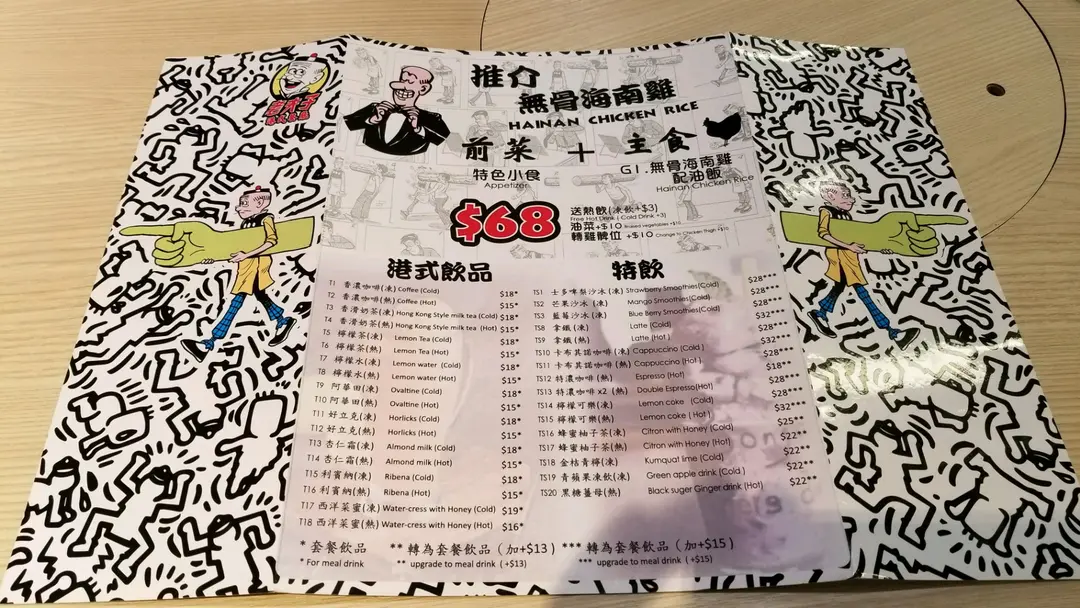 老夫子
推介
無骨海南雞
HAINAN CHICKEN RICE
前菜 + 主食
特色小食
Appetizer
G1.無骨海南雞
配油飯
Hainan Chicken Rice
$68
送熱飲(凍飲+$3)
Free Hot Drink ( Cold Drink +3)
油菜+$10 Boiled vegetables +$10
轉雞髀位 +$10 Change to Chicken thigh +$10
港式飲品
T1 香濃咖啡(凍) Coffee (Cold) $18*
T2 香濃咖啡(熱) Coffee (Hot) $15*
T3 香滑奶茶(凍) Hong Kong Style milk tea (Cold) $18*
T4 香滑奶茶(熱) Hong Kong Style milk tea (Hot) $15*
T5 檸檬茶(凍) Lemon Tea (Cold) $18*
T6 檸檬茶(熱) Lemon Tea (Hot) $15*
T7 檸檬水(凍) Lemon water (Cold) $18*
T8 檸檬水(熱) Lemon water (Hot) $15*
T9 阿華田(凍) Ovaltine (Cold) $18*
T10 阿華田(熱) Ovaltine (Hot) $15*
T11 好立克(凍) Horlicks (Cold) $18*
T12 好立克(熱) Horlicks (Hot) $15*
T13 杏仁霜(凍) Almond milk (Cold) $18*
T14 杏仁霜(熱) Almond milk (Hot) $15*
T15 利賓納(凍) Ribena (Cold) $18*
T16 利賓納(熱) Ribena (Hot) $15*
T17 西洋菜蜜(凍) Water-cress with Honey (Cold) $19*
T18 西洋菜蜜(熱) Water-cress with Honey (Hot) $16*
特飲
TS1 士多啤梨沙冰(凍) Strawberry Smoothies(Cold) $28***
TS2 芒果沙冰(凍) Mango Smoothies(Cold) $28***
TS3 藍莓沙冰(凍) Blue Berry Smoothies(Cold) $28***
TS8 拿鐵(凍) Latte (Cold) $32***
TS9 拿鐵(熱) Latte (Hot) $28***
TS10 卡布其諾咖啡(凍) Cappuccino (Cold) $32***
TS11 卡布其諾咖啡(熱) Cappuccino (Hot) $28***
TS12 特濃咖啡(熱) Espresso (Hot) $18*
TS13 特濃咖啡 x2 (熱) Double Espresso(Hot) $28***
TS14 檸檬可樂(凍) Lemon coke (Cold) $28***
TS15 檸檬可樂(熱) Lemon coke ( Hot ) $32***
TS16 蜂蜜柚子茶(凍) Citron with Honey (Cold) $25**
TS17 蜂蜜柚子茶(熱) Citron with Honey (Hot) $22**
TS18 金桔青檸(凍) Kumquat lime (Cold) $22**
TS19 青蘋果凍飲(凍) Green apple drink (Cold ) $22**
TS20 黑糖薑母(熱) Black suger Ginger drink (Hot) $22**
* 套餐飲品 ** 轉為套餐飲品 ( 加+$13 ) *** 轉為套餐飲品 ( 加+$15 )
* For meal drink ** upgrade to meal drink (+$13) *** upgrade to meal drink (+$15)